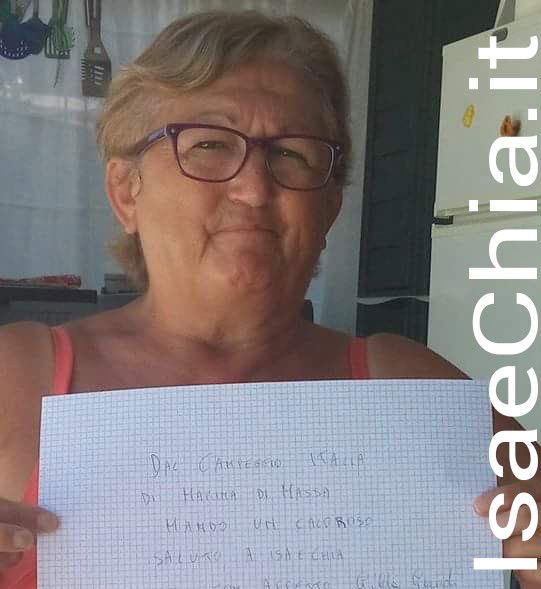 DAL CAMPEGGIO ITALIA
DI MARINA DI MASSA
MANDO UN CALOROSO
SALUTO A ISAECHIA
CON AFFETTO
IsaeChia.it